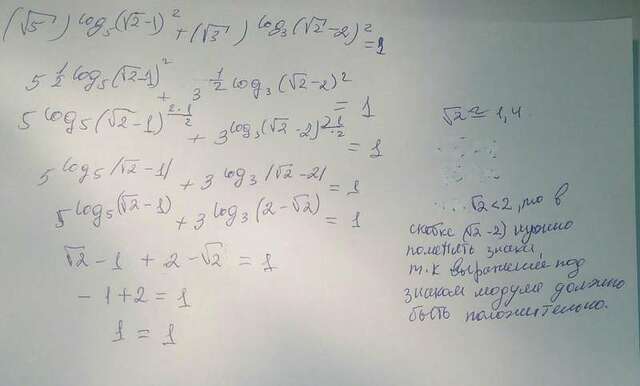 (√5)^log₅(√2-1)² + (√3)^log₃(√2-2)² = 1
5^½ log₅(√2-1)² + 3^½ log₃(√2-2)² = 1
5^log₅(√2-1)^(2·1/2) + 3^log₃(√2-2)^(2·1/2) = 1
5^log₅|√2-1| + 3^log₃|√2-2| = 1
5^log₅(√2-1) + 3^log₃(2-√2) = 1
√2-1 + 2-√2 = 1
-1+2 = 1
1 = 1
√2 ≈ 1,4.
√2<2, то в
скобке (√2-2) нужно
поменять знаки,
т.к выражение под
знаком модуля должно
быть положительно.